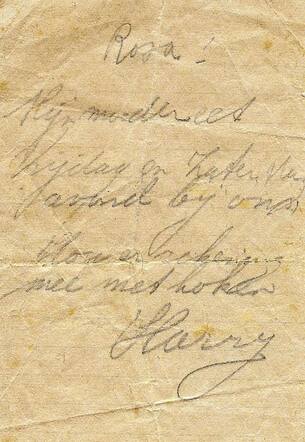 Rosa!
Mijn moeder eet
vrijdag en Zaterdag
avond bij ons
Hou er rekening
mee met koken
Harry